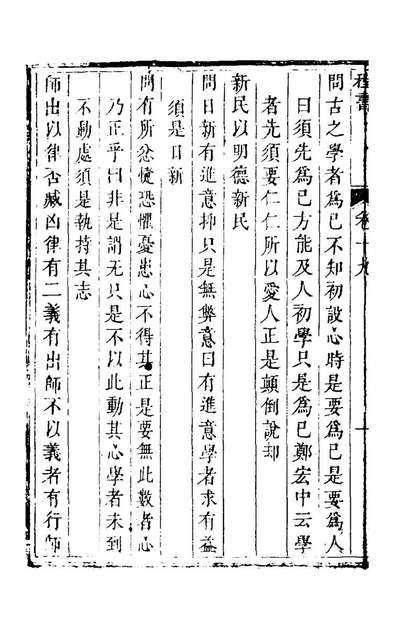 程書
卷十九
十
問古之學者爲已不知初設心時是要爲已是要爲人
曰須先爲已方能及人初學只是爲已鄭宏中云學
者先須要仁仁所以愛人正是顛倒說却
新民以明德新民
問日新有進意抑只是無弊意曰有進意學者求有益
須是日新
問有所忿懥恐懼憂患心不得其正是要無此數者心
乃正乎曰非是謂无只是不以此動其心學者未到
不動處須是執持其志
師出以律否臧凶律有二義有出師不以義者有行師